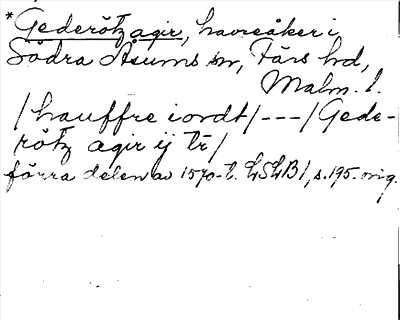 * Gederötz agir, havreåker i
Södra Åsums sn, Färs hd,
Malm. l.
/hauffre iordt/---/Gede-
rötz agir ij tr/
förra delen av 1570-t. LSLB 1, s. 195. orig.